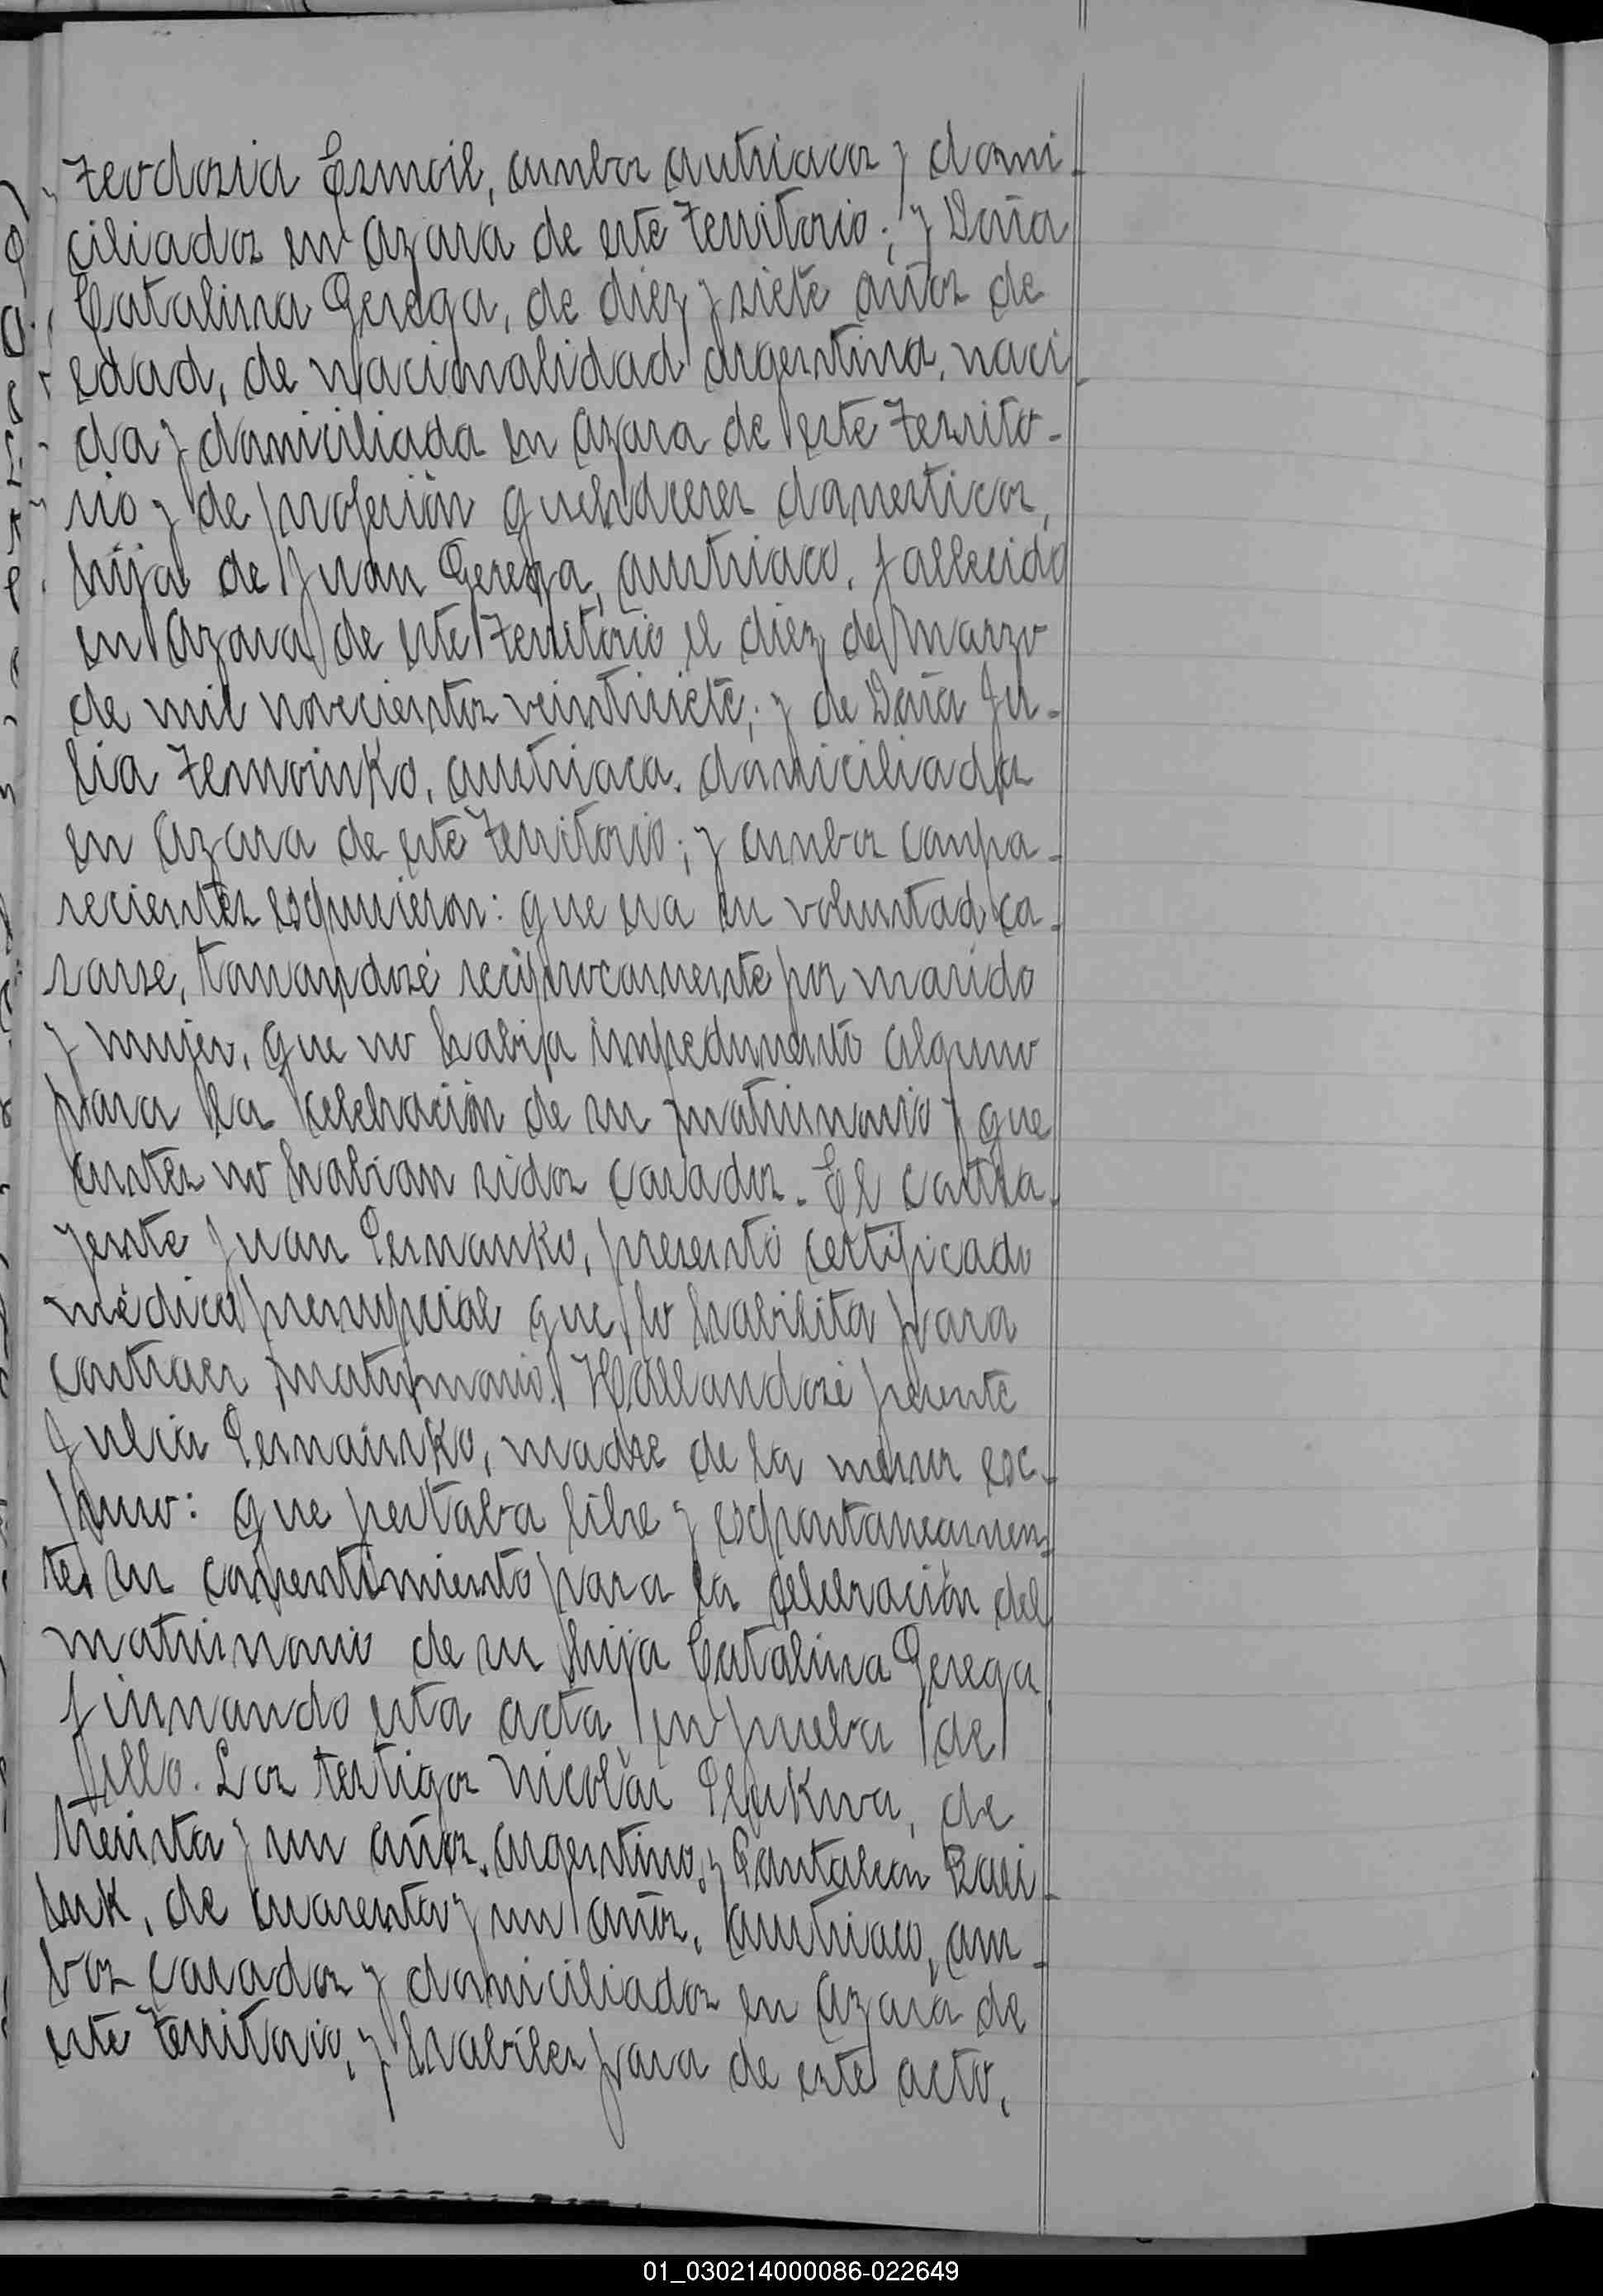 Teodosia Esmoil, ambos autriacos y domi-
ciliados en Azara de este Territorio; y Doña
Catalina Gerega, de diez y siete años de
edad, de nacionalidad argentina, naci-
da y domiciliada en Azara de este Territo-
rio y de profesión quehaceres domesticos,
hija de Juan Gerega, austriaco, fallecido
en Azara de este Territorio el diez de Marzo
de mil novecientos veintisiete; y de Doña Ju-
lia Zemoinko, austriaca, domiciliada
en Azara de este Territorio; y ambos compa-
recientes espusieron: que era su voluntad ca-
sarse, tomandosé reciprocamente por marido
y mujer, que no habia impedimento alguno
para la celebración de su matrimonio y que
antes no habian sidos casados. El contra-
yente Juan Semanko, presentó certificado
médico prenupcial que lo habilita para
contraer matrimonio. Hallandosé presente
Julia Semainko, madre de la menor esc-
puso: que prestaba libre y espontaneamen-
te su consentimiento para la celebración del
matrimonio de su hija Catalina Gerega
firmando esta acta en prueba de
ello. Los testigos Nicolás de
treinta y un años, argentino, y Pantaleon
de cuarenta y un años, austriaco, am-
bos casados y domiciliados en Azara de
este Territorio, y habiles para de este acto,
01_030214000086-022649